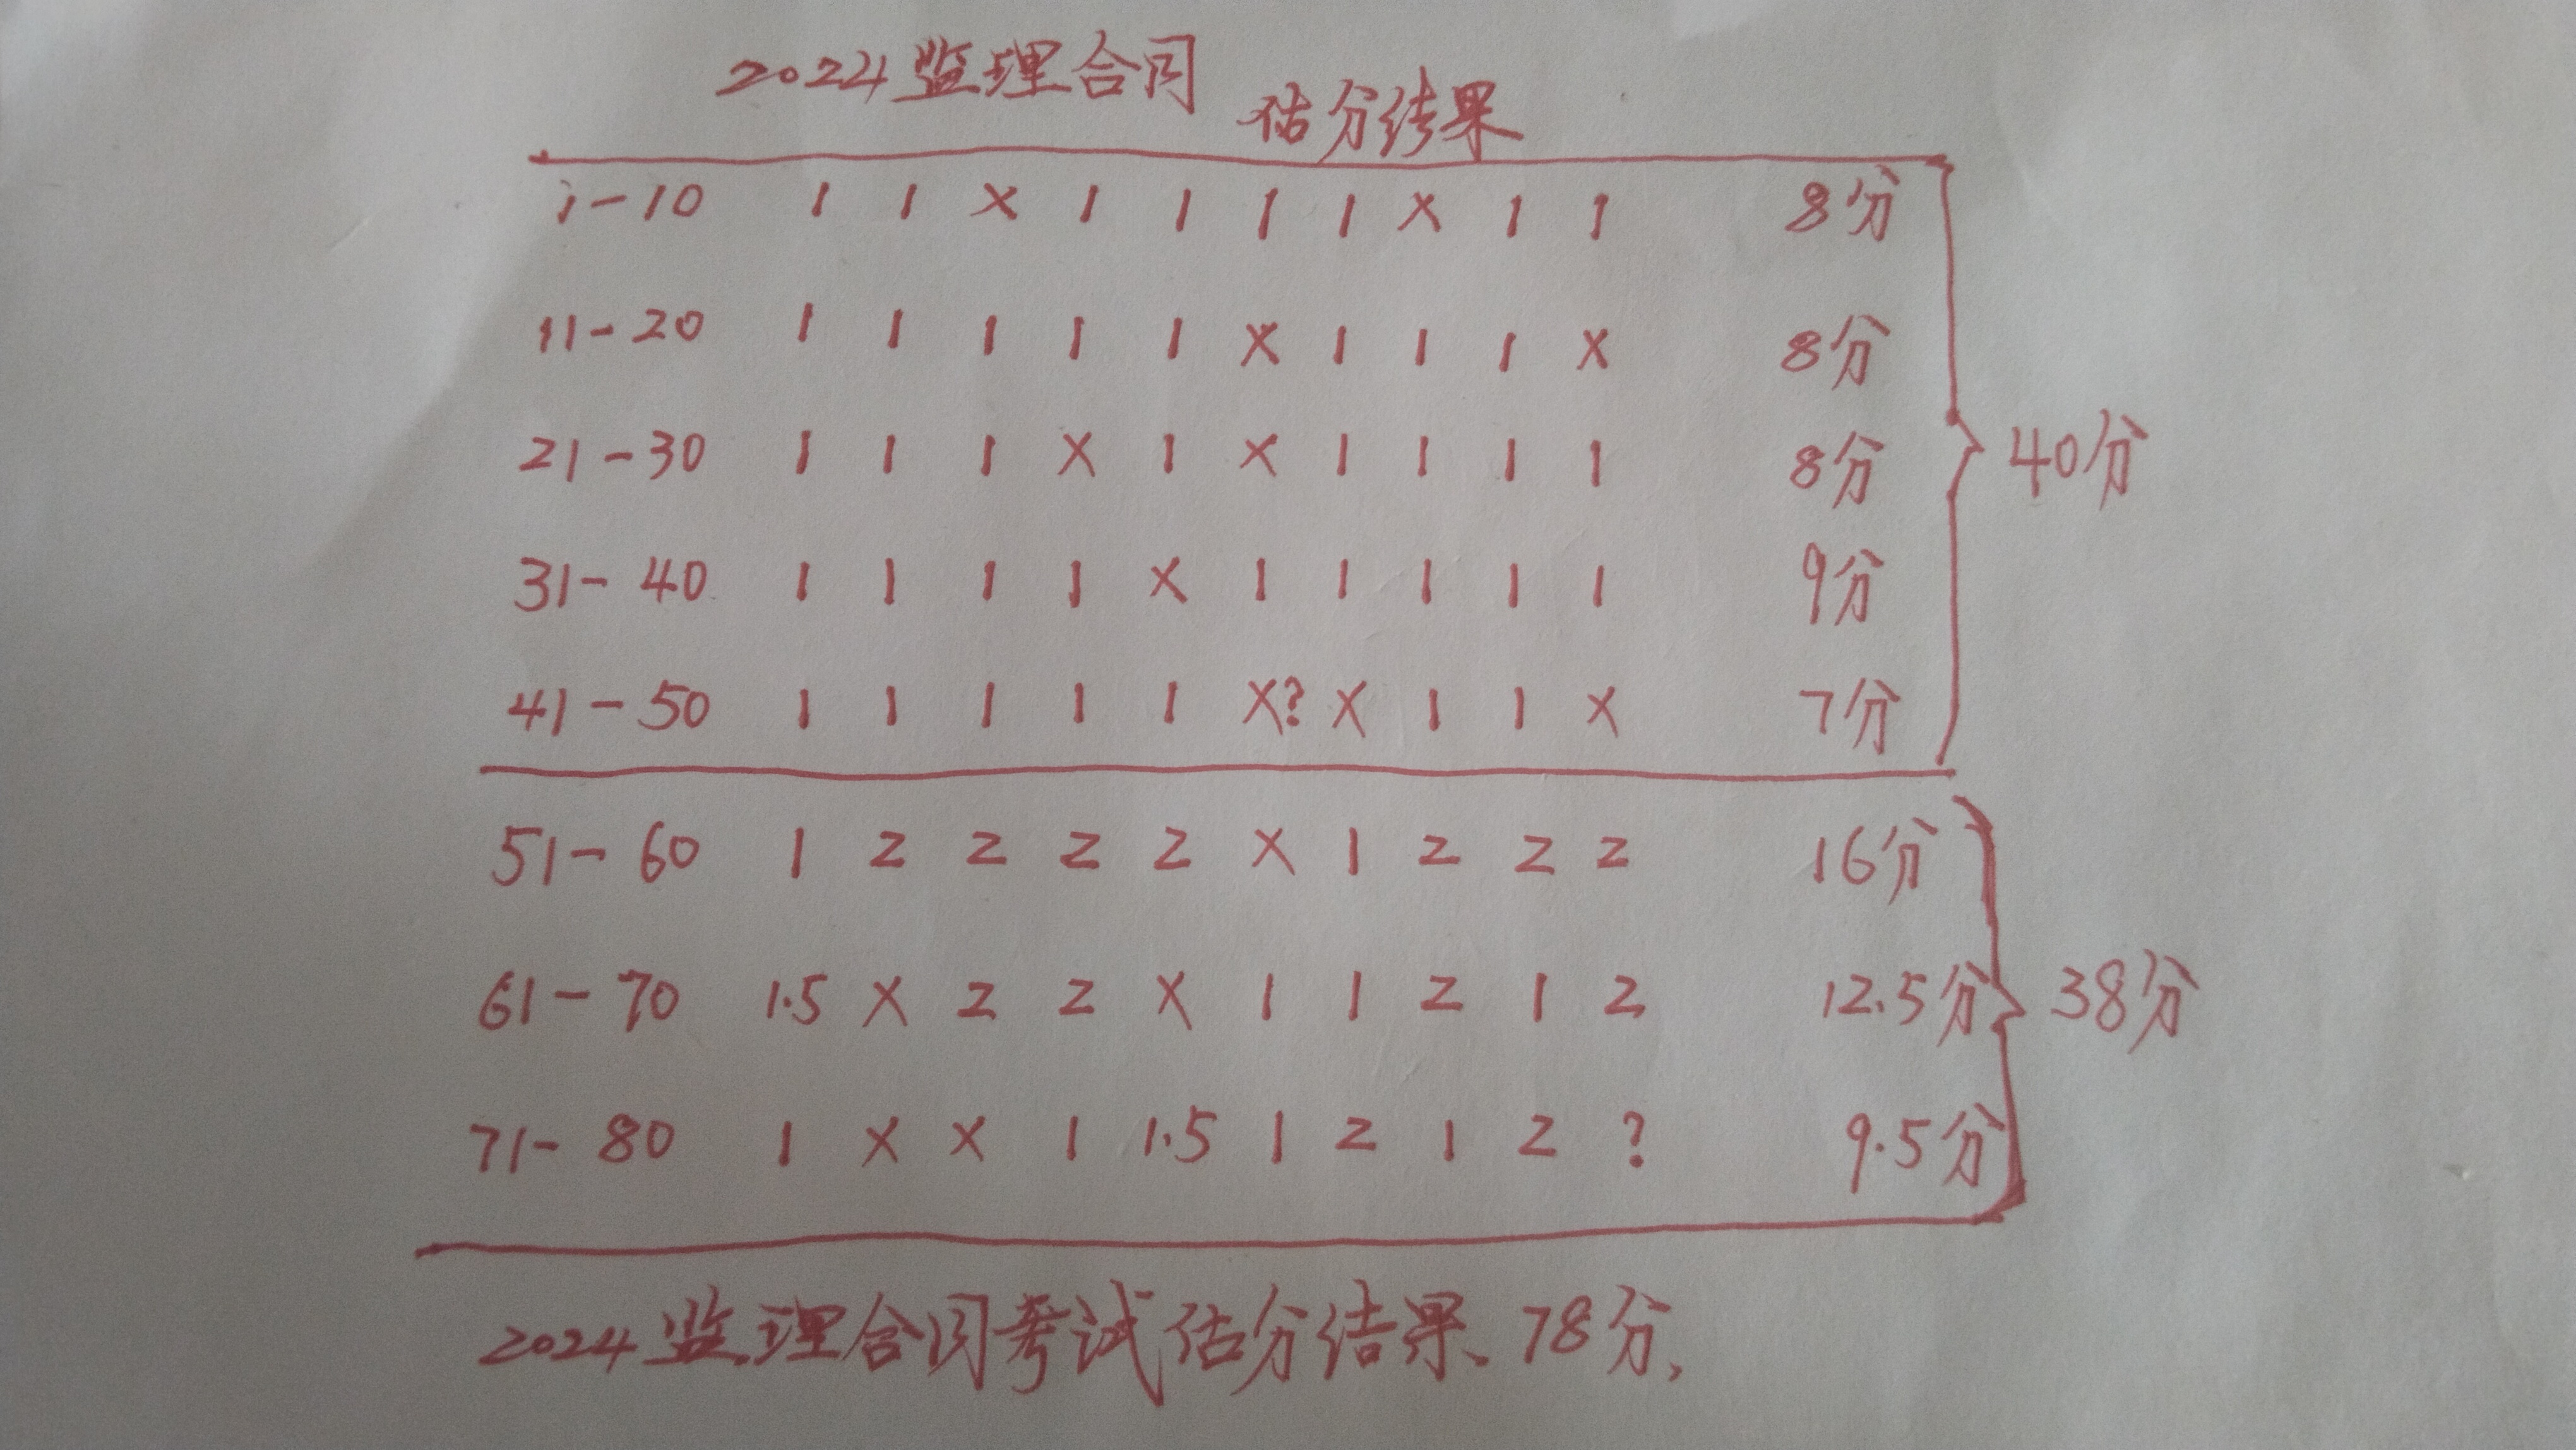 2024监理合同
估分结果
1-10 1 1 × 1 1 1 1 × 1 1 8分
11-20 1 1 1 1 1 × 1 1 1 × 8分
21-30 1 1 1 × 1 × 1 1 1 1 8分
40分
31-40 1 1 1 1 × 1 1 1 1 1 9分
41-50 1 1 1 1 1 ×? × 1 1 × 7分
51-60 1 2 2 2 2 × 1 2 2 2 16分
61-70 1.5 × 2 2 × 1 1 2 1 2 12.5分
38分
71-80 1 × × 1 1.5 1 2 1 2 ? 9.5分
2024监理合同考试估分结果、78分,